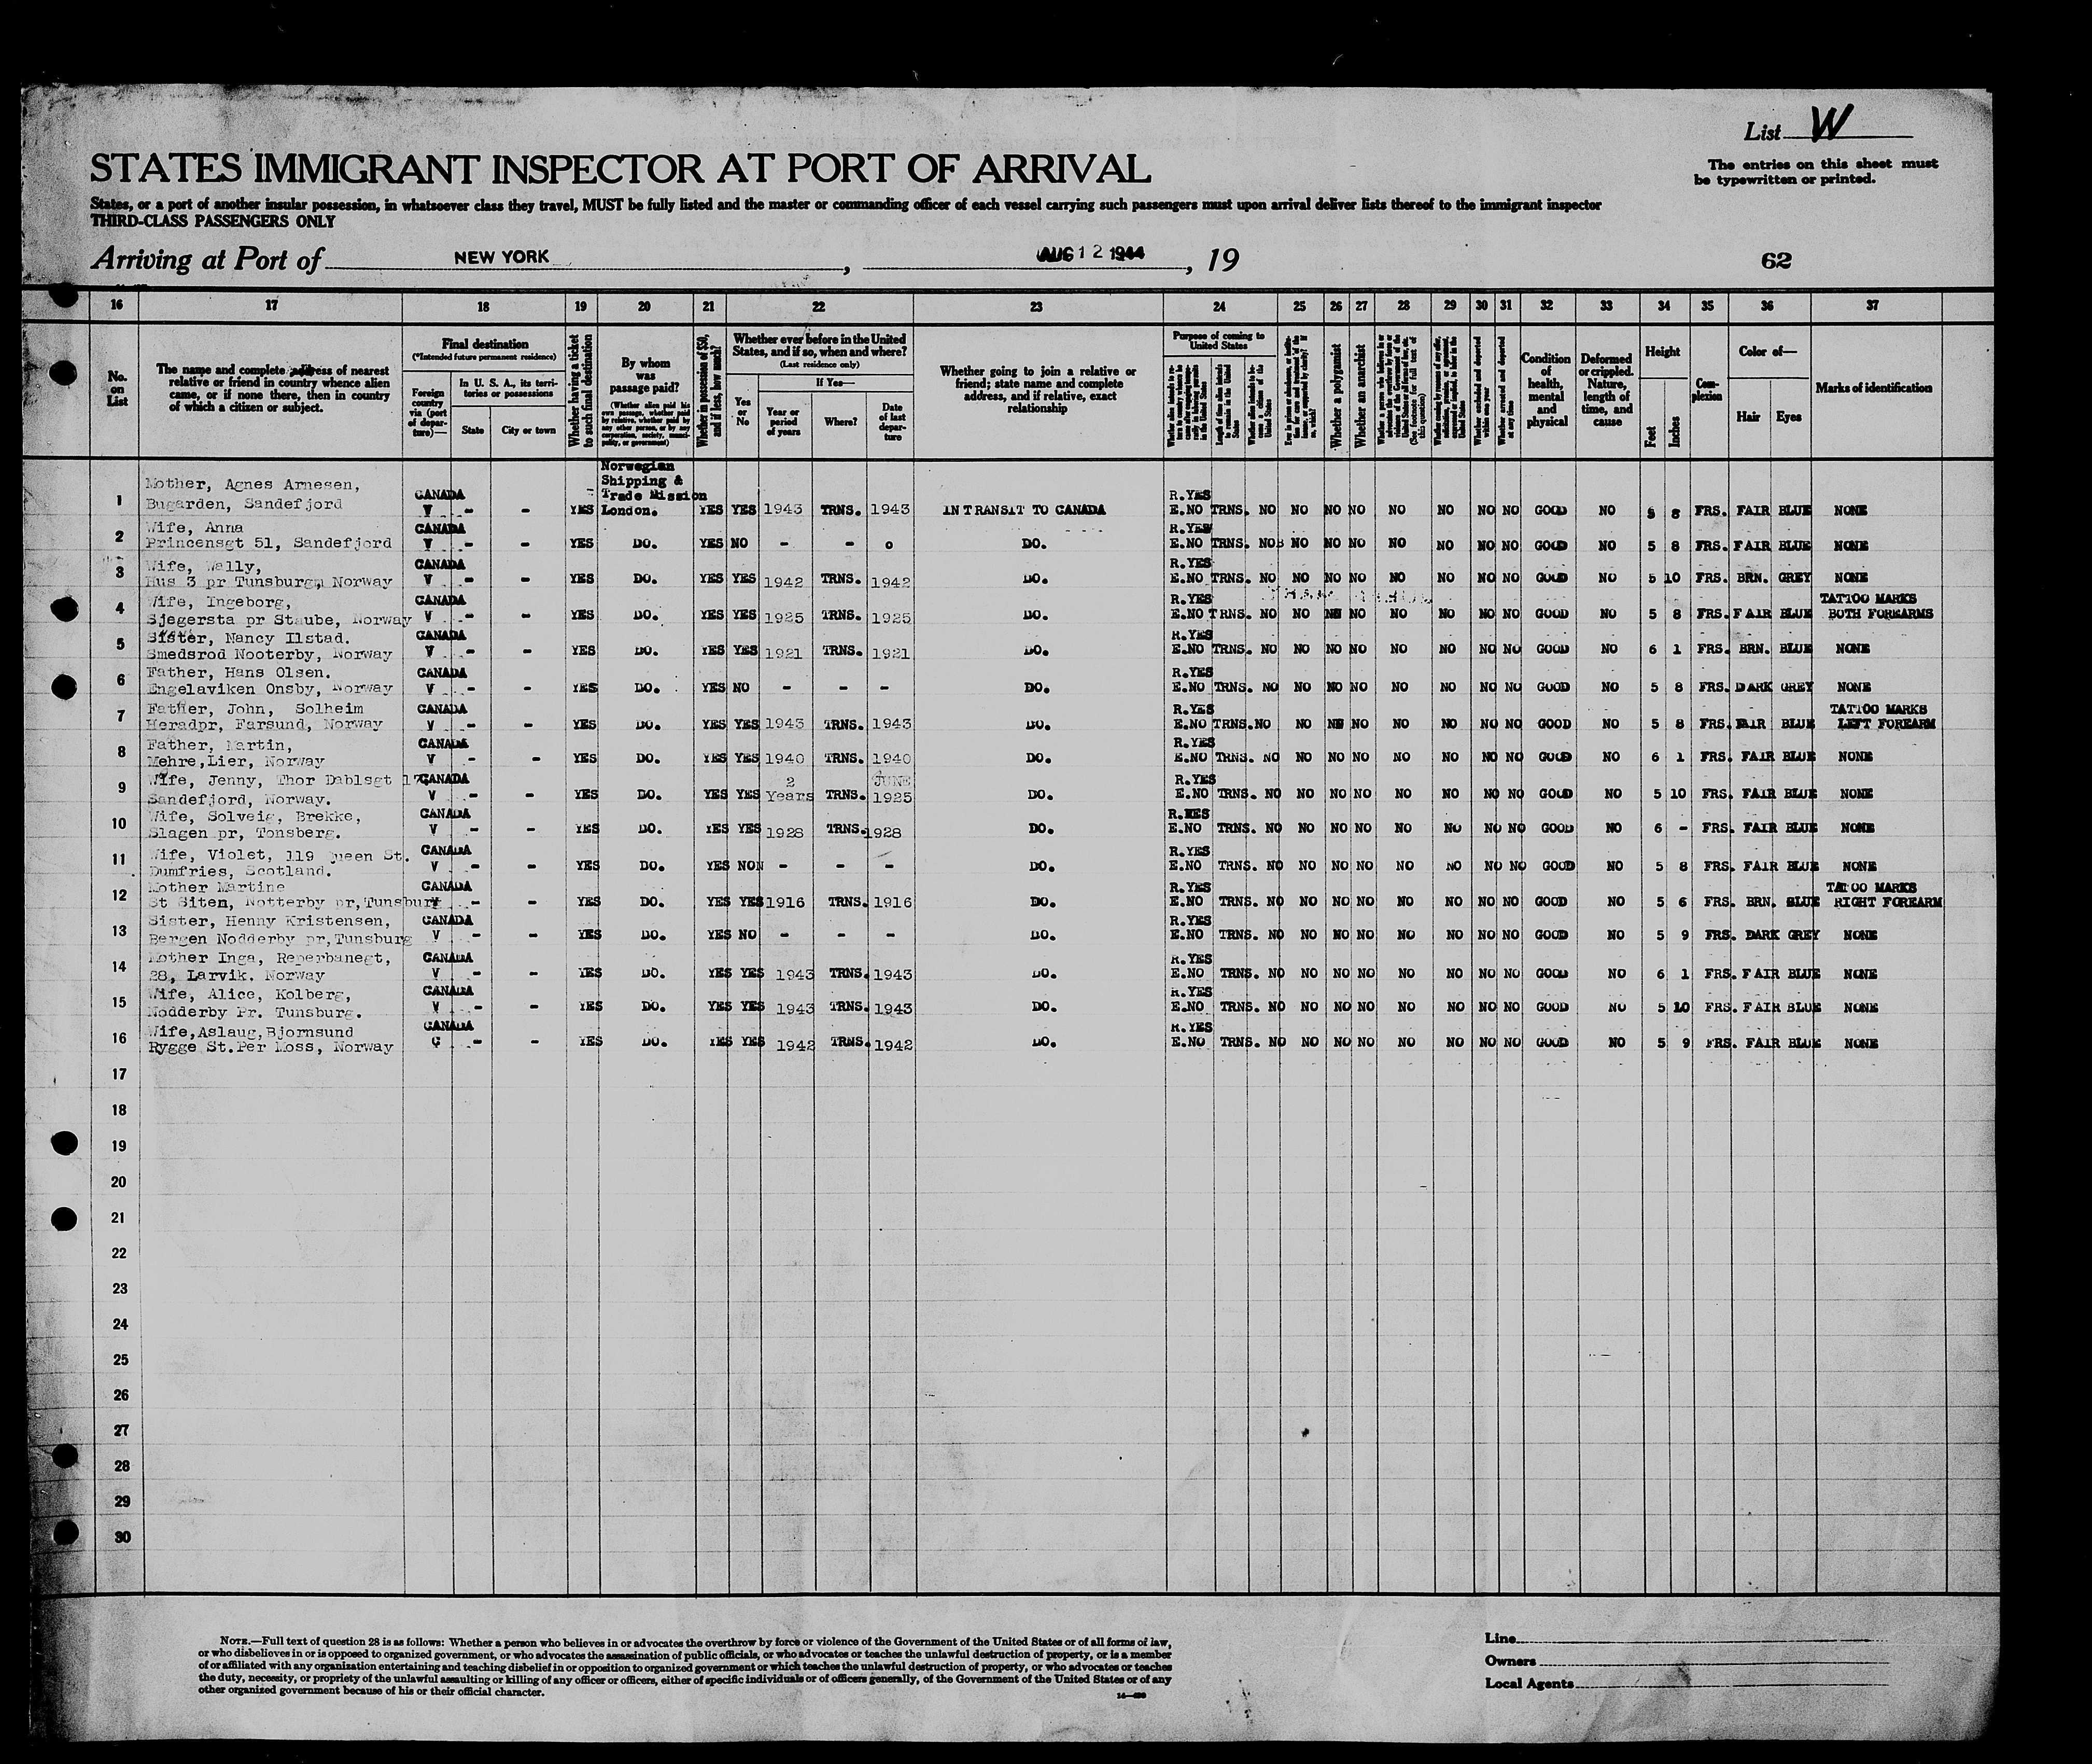 List W
STATES IMMIGRANT INSPECTOR AT PORT OF ARRIVAL
The entries on this sheet must
be typewritten or printed.
States, or a port of another insular possession, in whatsoever class they travel, MUST be fully listed and the master or commanding officer of each vessel carrying such passengers must upon arrival deliver lists thereof to the immigrant inspector
THIRD-CLASS PASSENGERS ONLY
Arriving at Port of NEW YORK, AUG 12 1944, 19
62
16 17 18 19 20 21 22 23 24 25 26 27 28 29 30 31 32 33 34 35 36 37
No. on List
The name and complete address of nearest relative or friend in country whence alien came, or if none there, then in country of which a citizen or subject.
Final destination
(*Intended future permanent residence)
Foreign country via (port of departure)—
In U. S. A., its territories or possessions
State
City or town
Whether having a ticket to such final destination
By whom was passage paid?
(Whether alien paid his own passage, whether paid by relative, whether paid by any other person, or by any corporation, society, municipality, or government)
Whether in possession of $50, and if less, how much?
Whether ever before in the United States, and if so, when and where?
(Last residence only)
Yes or No
If Yes—
Year or period of years
Where?
Date of last departure
Whether going to join a relative or friend; state name and complete address, and if relative, exact relationship
Purpose of coming to United States
Whether a polygamist
Whether an anarchist
Condition of health, mental and physical
Deformed or crippled. Nature, length of time, and cause
Height
Feet
Inches
Complexion
Color of—
Hair
Eyes
Marks of identification
1 Mother, Agnes Arnesen, Bugarden, Sandefjord CANADA V - - YES Norwegian Shipping & Trade Mission London. YES YES 1943 TRNS. 1943 IN TRANSIT TO CANADA R.YES E.NO TRNS. NO NO NO NO NO NO NO NO GOOD NO 5 8 FRS. FAIR BLUE NONE
2 Wife, Anna Princensgt 51, Sandefjord CANADA V - - YES DO. YES NO - - o DO. R.YES E.NO TRNS. NO NO NO NO NO NO NO NO GOOD NO 5 8 FRS. FAIR BLUE NONE
3 Wife, Wally, Hus 3 pr Tunsburg, Norway CANADA V - - YES DO. YES YES 1942 TRNS. 1942 DO. R.YES E.NO TRNS. NO NO NO NO NO NO NO NO GOOD NO 5 10 FRS. BRN. GREY NONE
4 Wife, Ingeborg, Sjegersta pr Staube, Norway CANADA V - - YES DO. YES YES 1925 TRNS. 1925 DO. R.YES E.NO TRNS. NO NO NO NO NO NO NO NO GOOD NO 5 8 FRS. FAIR BLUE TATTOO MARKS BOTH FOREARMS
5 Sister, Nancy Ilstad. Smedsrod Nooterby, Norway CANADA V - - YES DO. YES YES 1921 TRNS. 1921 DO. R.YES E.NO TRNS. NO NO NO NO NO NO NO NO GOOD NO 6 1 FRS. BRN. BLUE NONE
6 Father, Hans Olsen. Engelaviken Onsby, Norway CANADA V - - YES DO. YES NO - - - DO. R.YES E.NO TRNS. NO NO NO NO NO NO NO NO GOOD NO 5 8 FRS. DARK GREY NONE
7 Father, John, Solheim Heradpr, Farsund, Norway CANADA V - - YES DO. YES YES 1943 TRNS. 1943 DO. R.YES E.NO TRNS. NO NO NO NO NO NO NO NO GOOD NO 5 8 FRS. FAIR BLUE TATTOO MARKS LEFT FOREARM
8 Father, Martin, Mehre,Lier, Norway CANADA V - - YES DO. YES YES 1940 TRNS. 1940 DO. R.YES E.NO TRNS. NO NO NO NO NO NO NO NO GOOD NO 6 1 FRS. FAIR BLUE NONE
9 Wife, Jenny, Thor Dablsgt 17 Sandefjord, Norway. CANADA V - - YES DO. YES YES 2 Years TRNS. JUNE 1925 DO. R.YES E.NO TRNS. NO NO NO NO NO NO NO NO GOOD NO 5 10 FRS. FAIR BLUE NONE
10 Wife, Solveig, Brekke, Slagen pr, Tonsberg. CANADA V - - YES DO. YES YES 1928 TRNS. 1928 DO. R.YES E.NO TRNS. NO NO NO NO NO NO NO NO GOOD NO 6 - FRS. FAIR BLUE NONE
11 Wife, Violet, 119 Queen St. Dumfries, Scotland. CANADA V - - YES DO. YES NON - - - DO. R.YES E.NO TRNS. NO NO NO NO NO NO NO NO GOOD NO 5 8 FRS. FAIR BLUE NONE
12 Mother Martine St Siten, Notterby pr,Tunsburg CANADA V - - YES DO. YES YES 1916 TRNS. 1916 DO. R.YES E.NO TRNS. NO NO NO NO NO NO NO NO GOOD NO 5 6 FRS. BRN. BLUE TATOO MARKS RIGHT FOREARM
13 Sister, Henny Kristensen, Bergen Nodderby pr,Tunsburg CANADA V - - YES DO. YES NO - - - DO. R.YES E.NO TRNS. NO NO NO NO NO NO NO NO GOOD NO 5 9 FRS. DARK GREY NONE
14 Mother Inga, Reperbanegt, 28, Larvik. Norway CANADA V - - YES DO. YES YES 1943 TRNS. 1943 DO. R.YES E.NO TRNS. NO NO NO NO NO NO NO NO GOOD NO 6 1 FRS. FAIR BLUE NONE
15 Wife, Alice, Kolberg, Nodderby Pr. Tunsburg. CANADA V - - YES DO. YES YES 1943 TRNS. 1943 DO. R.YES E.NO TRNS. NO NO NO NO NO NO NO NO GOOD NO 5 10 FRS. FAIR BLUE NONE
16 Wife,Aslaug,Bjornsund Rygge St.Per Moss, Norway CANADA C - - YES DO. YES YES 1942 TRNS. 1942 DO. R.YES E.NO TRNS. NO NO NO NO NO NO NO NO GOOD NO 5 9 FRS. FAIR BLUE NONE
17
18
19
20
21
22
23
24
25
26
27
28
29
30
NOTE.—Full text of question 28 is as follows: Whether a person who believes in or advocates the overthrow by force or violence of the Government of the United States or of all forms of law,
or who disbelieves in or is opposed to organized government, or who advocates the assassination of public officials, or who advocates or teaches the unlawful destruction of property, or is a member
of or affiliated with any organization entertaining and teaching disbelief in or opposition to organized government or which teaches the unlawful destruction of property, or who advocates or teaches
the duty, necessity, or propriety of the unlawful assaulting or killing of any officer or officers, either of specific individuals or of officers generally, of the Government of the United States or of any
other organized government because of his or their official character.
Line
Owners
Local Agents